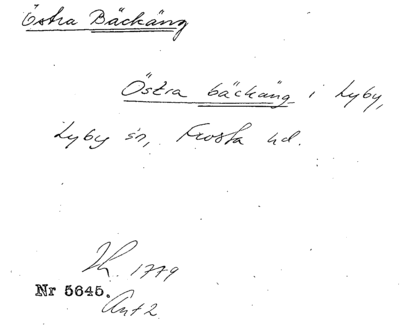 Östra Bäckäng
Östra bäckäng i Lyby,
Lyby sn, Frosta hd.
Lh. 1779
Nr 5645.
Ant 2